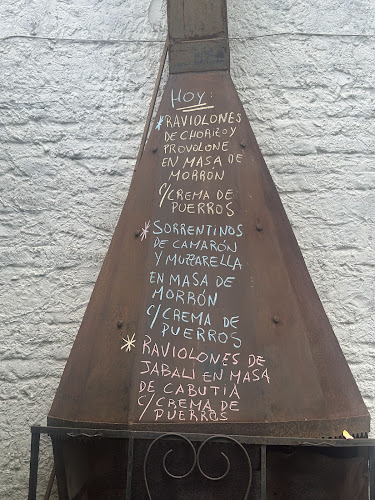 HOY:
* RAVIOLONES
DE CHORIZO Y
PROVOLONE
EN MASA DE
MORRÓN
C/CREMA DE
PUERROS
* SORRENTINOS
DE CAMARÓN
Y MUZZARELLA
EN MASA DE
MORRÓN
C/CREMA DE
PUERROS
* RAVIOLONES DE
JABALI EN MASA
DE CABUTIA
C/CREMA DE
PUERROS